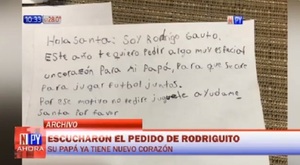 10:33
28.0°
NPY
Hola Santa: Soy Rodrigo Gauto.
Este año te quiero Pedir algo muy especial
un corazón Para mi Papá, Para que sane
Para jugar futbol juntos.
Por ese motivo no pedire juguete ayudame
Santa Por favor
ARCHIVO
ESCUCHARON EL PEDIDO DE RODRIGUITO
SU PAPÁ YA TIENE NUEVO CORAZÓN
NPY
AHORA